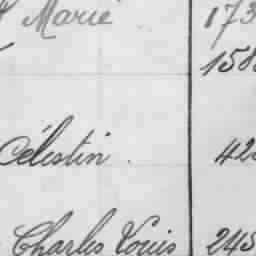 Marie 173
158
Célestin . 42
Charles Louis 245